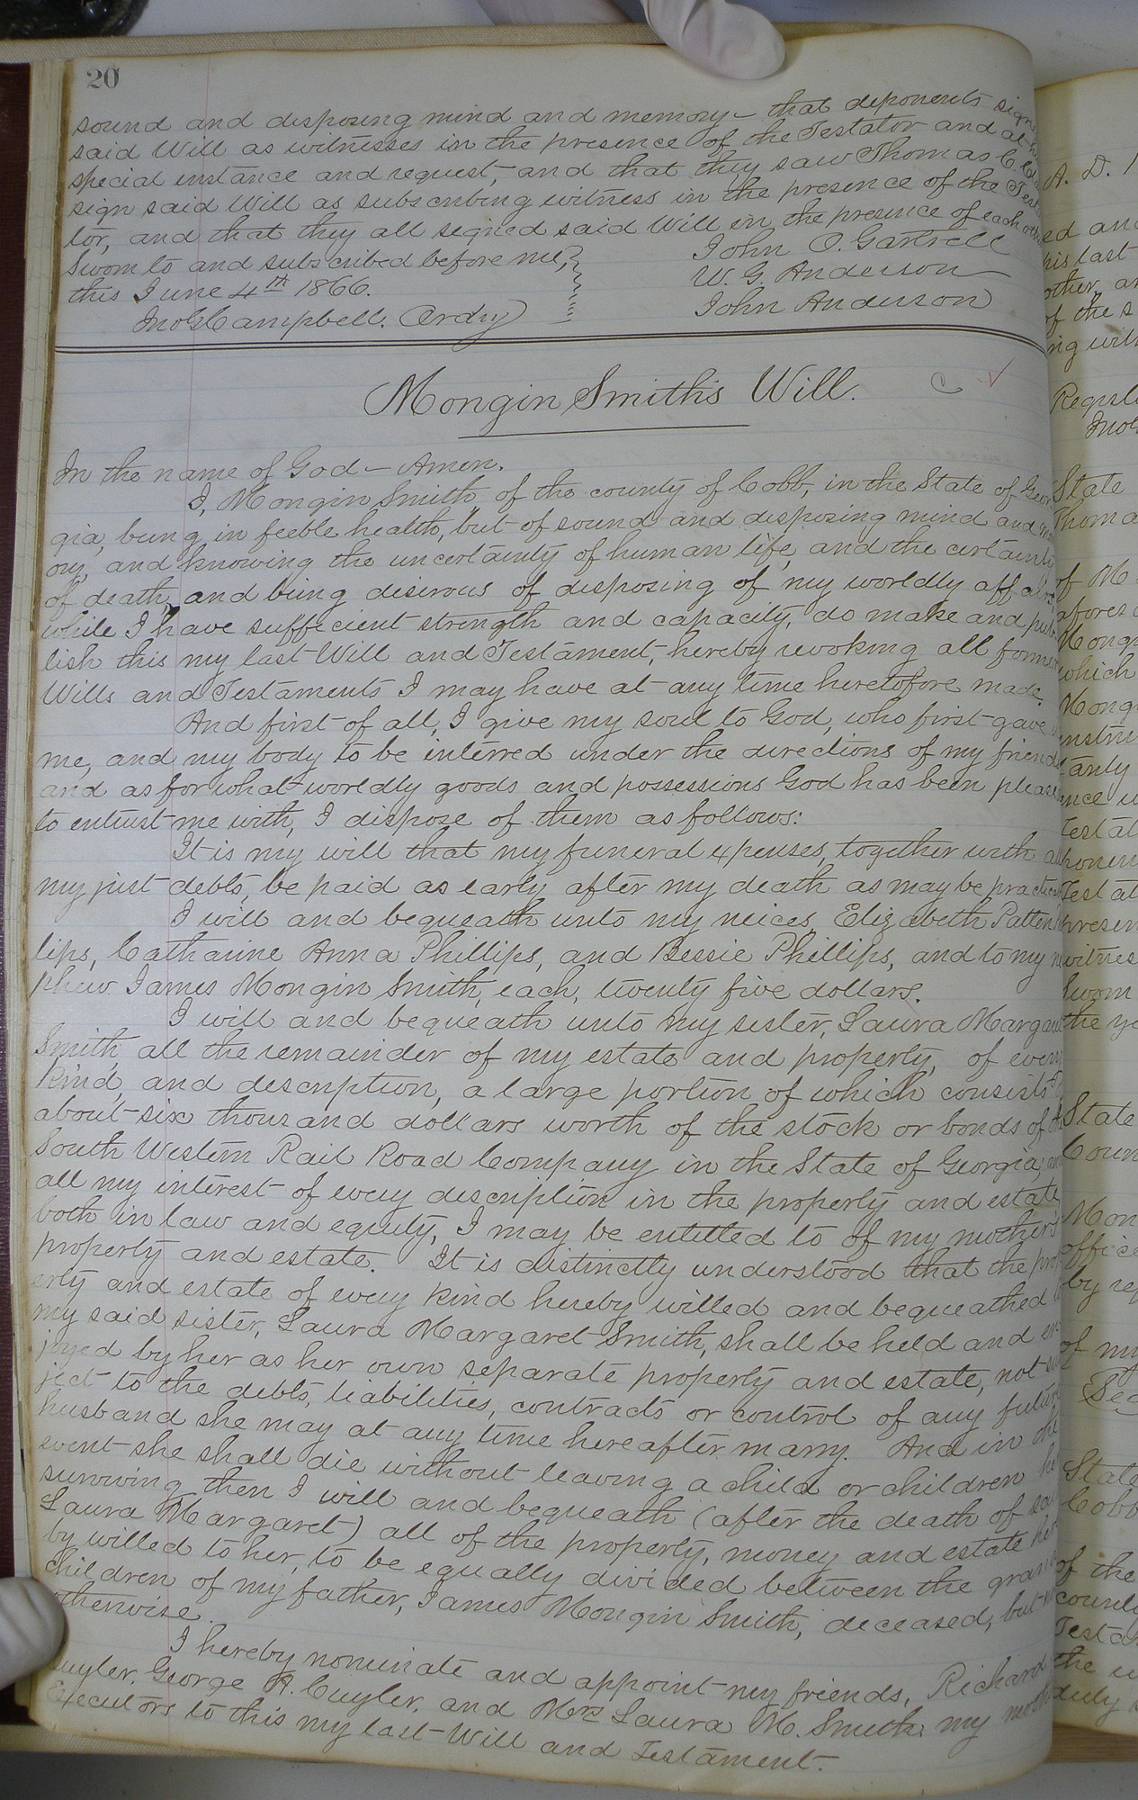 20
sound and disposing mind and memory – that deponents
said Will as witnesses in the presence of the Testator and at
special instance and request, and that they saw Thomas C.
sign said Will as subscribing witness in the presence of the
tor, and that they all signed said Will in the presence of each
Sworn to and subscribed before me, John O. Gartrell
this June 4th 1866. W. G. Anderson
Jno G Campbell. Ordy John Anderson
Mongin Smith's Will.
In the name of God – Amen.
I, Mongin Smith, of the county of Cobb, in the State of Geor
gia, being in feeble health, but of sound and disposing mind and
ory, and knowing the uncertainty of human life, and the certainty
of death, and being desirous of disposing of my worldly affairs
while I have sufficient strength and capacity, do make and pub
lish this my last Will and Testament, hereby revoking all former
Wills and Testaments I may have at any time heretofore made.
And first of all, I give my soul to God, who first gave
me, and my body to be interred under the directions of my friends
and as for what worldly goods and possessions God has been pleased
to entrust me with, I dispose of them as follows:
It is my will that my funeral expenses, together with all
my just debts, be paid as early after my death as may be practica
I will and bequeath unto my neices, Elizabeth Patten
lips, Catharine Anna Phillips, and Bessie Phillips, and to my ne
phew James Mongin Smith, each, twenty five dollars.
I will and bequeath unto my sister, Laura Margaret
Smith, all the remainder of my estate and property, of every
kind, and description, a large portion of which consists of
about six thousand dollars worth of the stock or bonds of the
South Western Rail Road Company in the State of Georgia, and
all my interest of every description in the property and estate
both in law and equity, I may be entitled to of my mother's
property and estate. It is distinctly understood that the prop
erty and estate of every kind hereby willed and bequeathed to
my said sister, Laura Margaret Smith, shall be held and en
joyed by her as her own separate property and estate, not sub
ject to the debts, liabilities, contracts or control of any future
husband she may at any time hereafter marry. And in the
event she shall die without leaving a child or children her
surviving then I will and bequeath (after the death of said
Laura Margaret) all of the property, money and estate here
by willed to her, to be equally divided between the grand
children of my father, James Mongin Smith, deceased, but not
otherwise.
I hereby nominate and appoint my friends, Richard
Cuyler, George A. Cuyler, and Mrs Laura M. Smith, my mother
Executors to this my last Will and Testament.
A. D.
State
of M
which
State
State
Cobb
of the